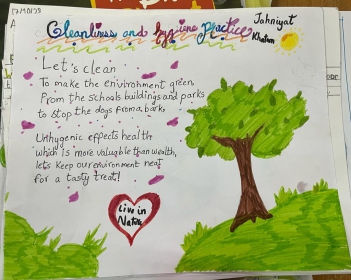 Cleanliness and hygiene Practice
Jahniyat
Khatun
Let's clean
To make the enivironment green,
From the schools buildings and parks
to stop the dogs from a bark.
Unhygenic effects health
which is more valuable than wealth,
let's keep our environment neat
for a tasty treat!
Live in
Nature